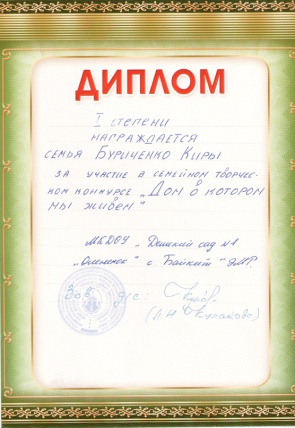 ДИПЛОМ
I степени
награждается
семья Буриченко Киры
за участие в семейном творчес-
ком конкурсе „Дом в котором
мы живём"
МБДОУ „Детский сад №1
„Олененок" с. Байкит" ЭМР.
Зав. д/с:
(Л.Н. Кулакова)